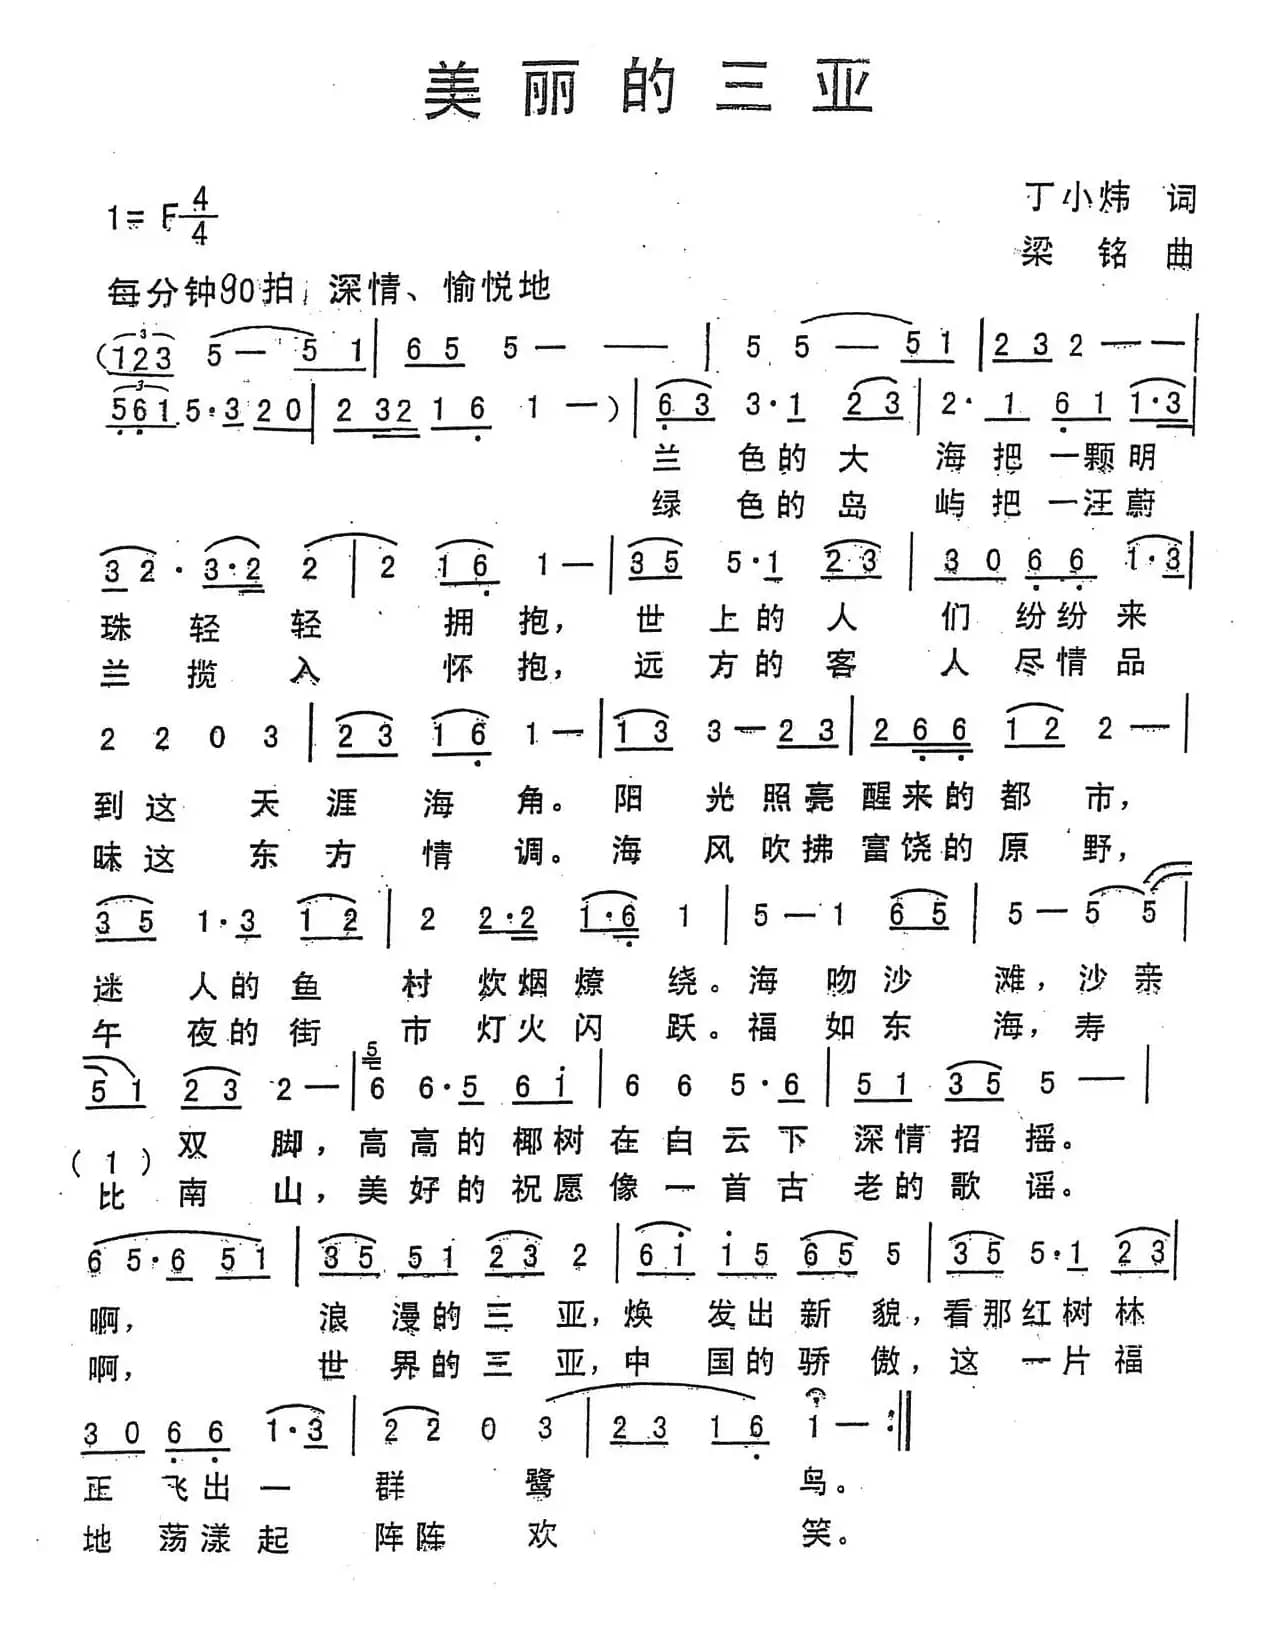 美丽的三亚
1=F 4/4
丁小炜 词
梁铭 曲
每分钟90拍, 深情、愉悦地
(123 5 — 5 1 | 6 5 5 — — | 5 5 — 5 1 | 2 3 2 — — |
5 6 1 5·3 2 0 | 2 3 2 1 6 1 —) | 6 3 3·1 2 3 | 2· 1 6 1 1·3 |
兰色的大海把一颗明
绿色的岛屿把一汪蔚
3 2· 3·2 2 | 2 1 6 1 — | 3 5 5·1 2 3 | 3 0 6 6 1·3 |
珠轻轻拥抱,世上的人们纷纷来
兰揽入怀抱,远方的客人尽情品
2 2 0 3 | 2 3 1 6 1 — | 1 3 3 — 2 3 | 2 6 6 1 2 2 — |
到这天涯海角。阳光照亮醒来的都市,
味这东方情调。海风吹拂富饶的原野,
3 5 1·3 1 2 | 2 2·2 1·6 1 | 5 — 1 6 5 | 5 — 5 5 |
迷人的鱼村炊烟燎绕。海吻沙滩,沙亲
午夜的街市灯火闪跃。福如东海,寿
5 1 2 3 2 — | 5 6 6·5 6 i | 6 6 5·6 | 5 1 3 5 5 — |
(1) 双脚,高高的椰树在白云下深情招摇。
比南山,美好的祝愿像一首古老的歌谣。
6 5·6 5 1 | 3 5 5 1 2 3 2 | 6 i i 5 6 5 5 | 3 5 5·1 2 3 |
啊,浪漫的三亚,焕发出新貌,看那红树林
啊,世界的三亚,中国的骄傲,这一片福
3 0 6 6 1·3 | 2 2 0 3 | 2 3 1 6 1 — :||
正飞出一群鹭鸟。
地荡漾起阵阵欢笑。